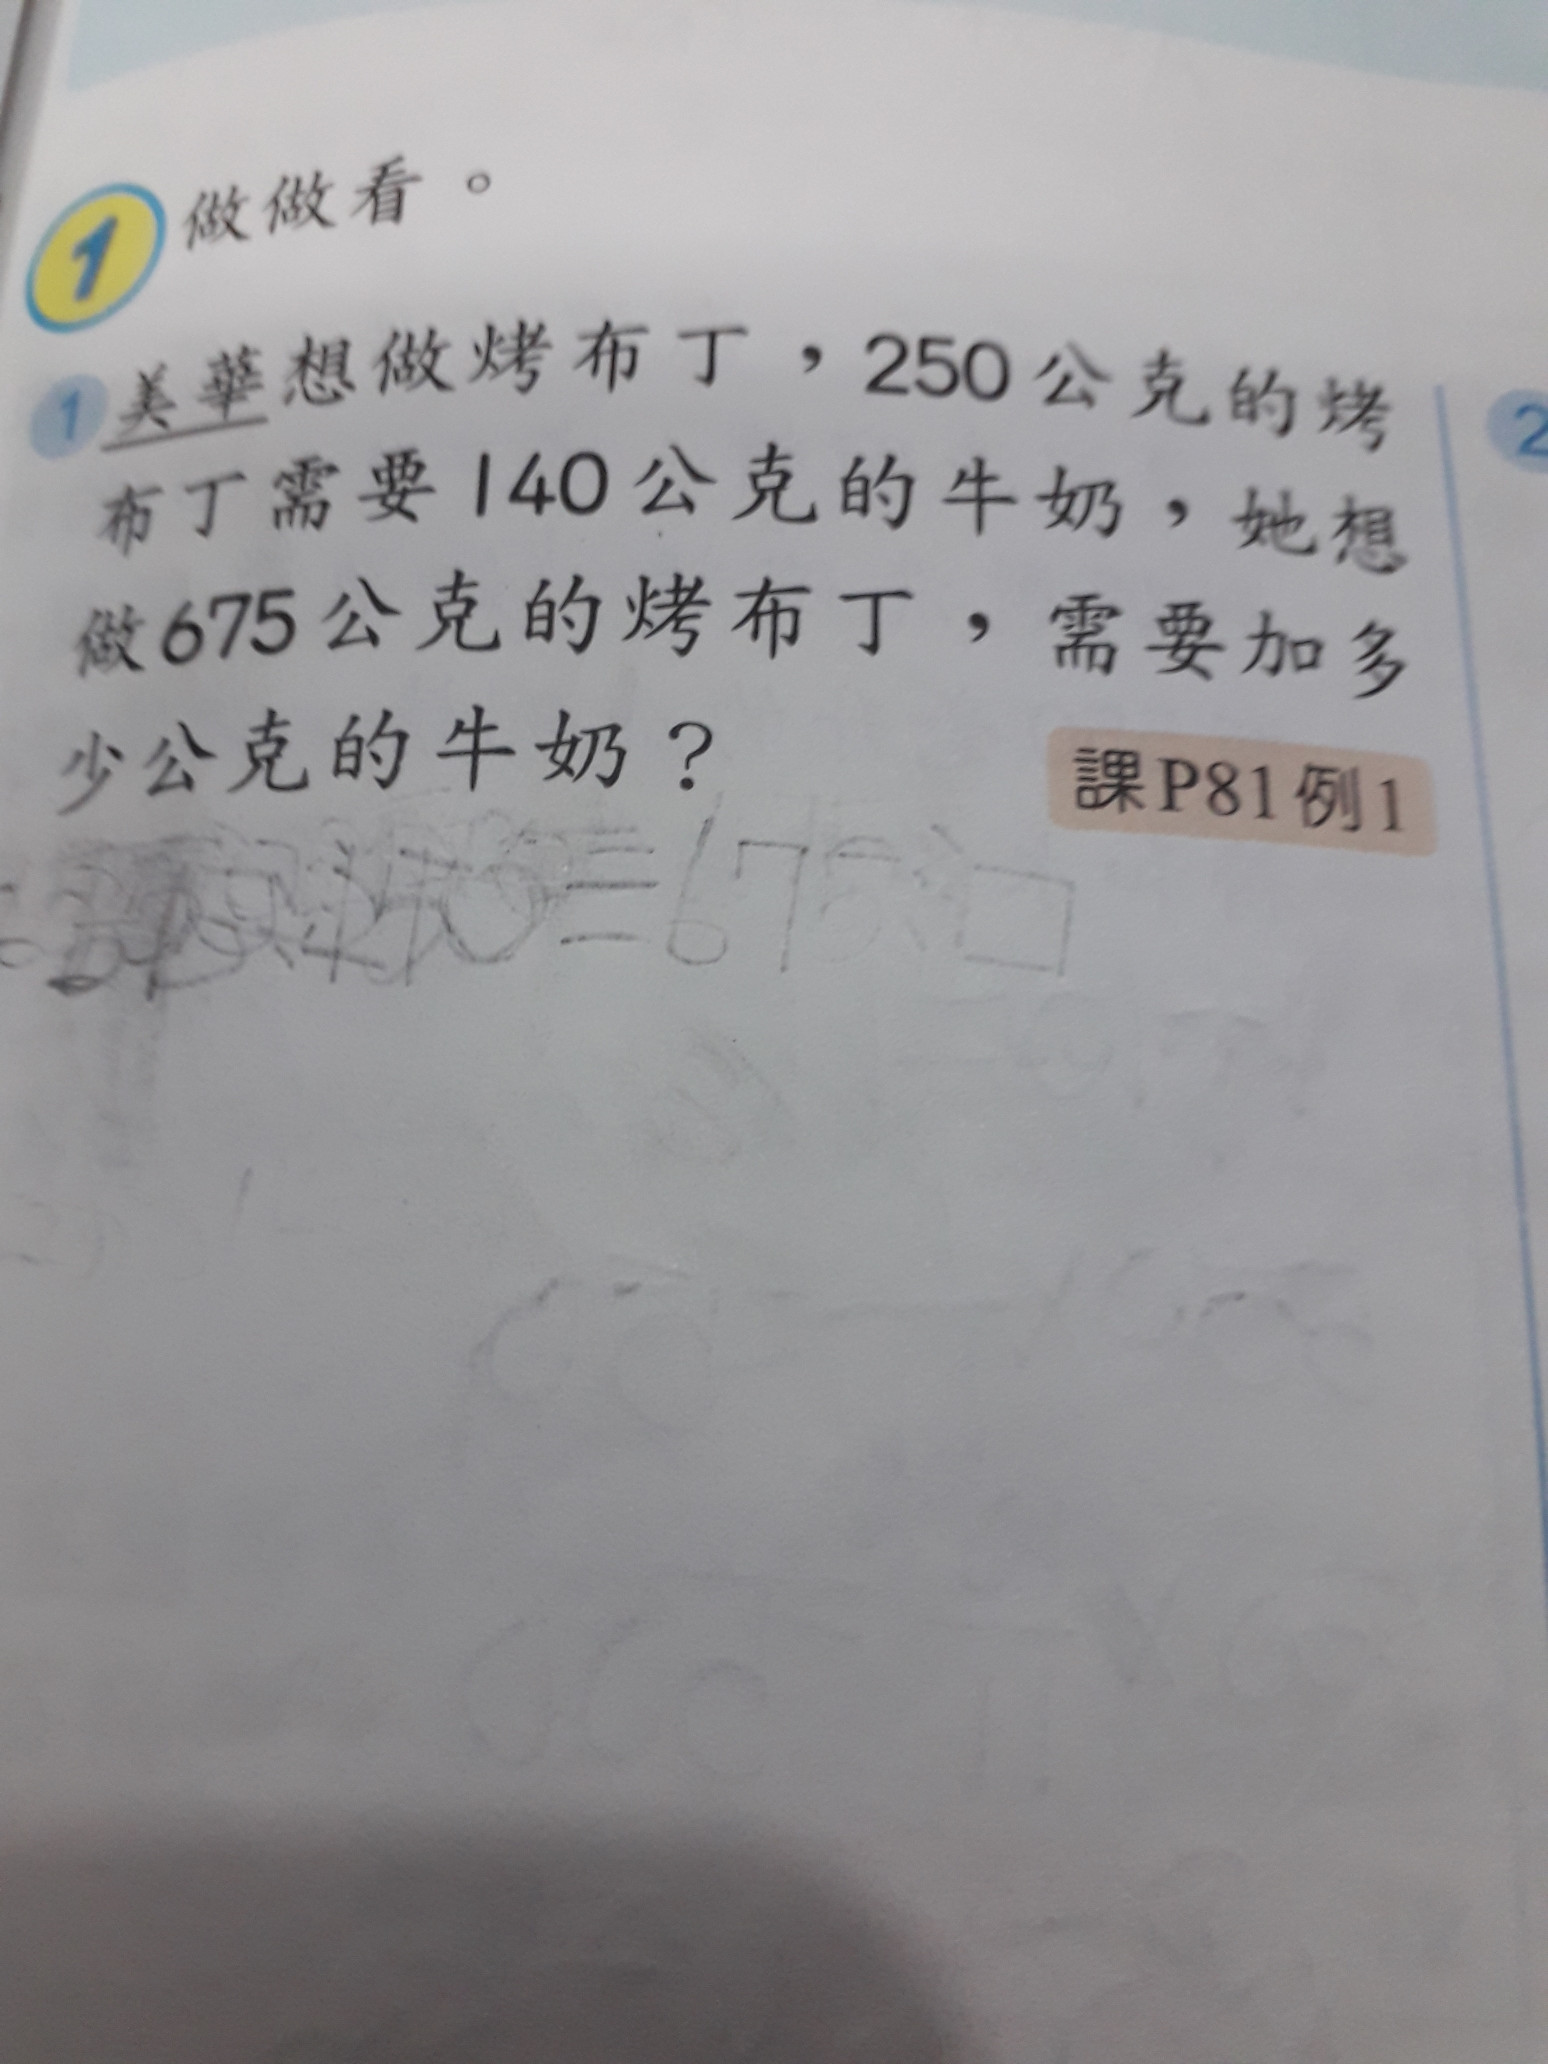 1 做做看。
1 美華想做烤布丁，250公克的烤
布丁需要140公克的牛奶，她想
做675公克的烤布丁，需要加多
少公克的牛奶？
課P81例1
=675:□
2